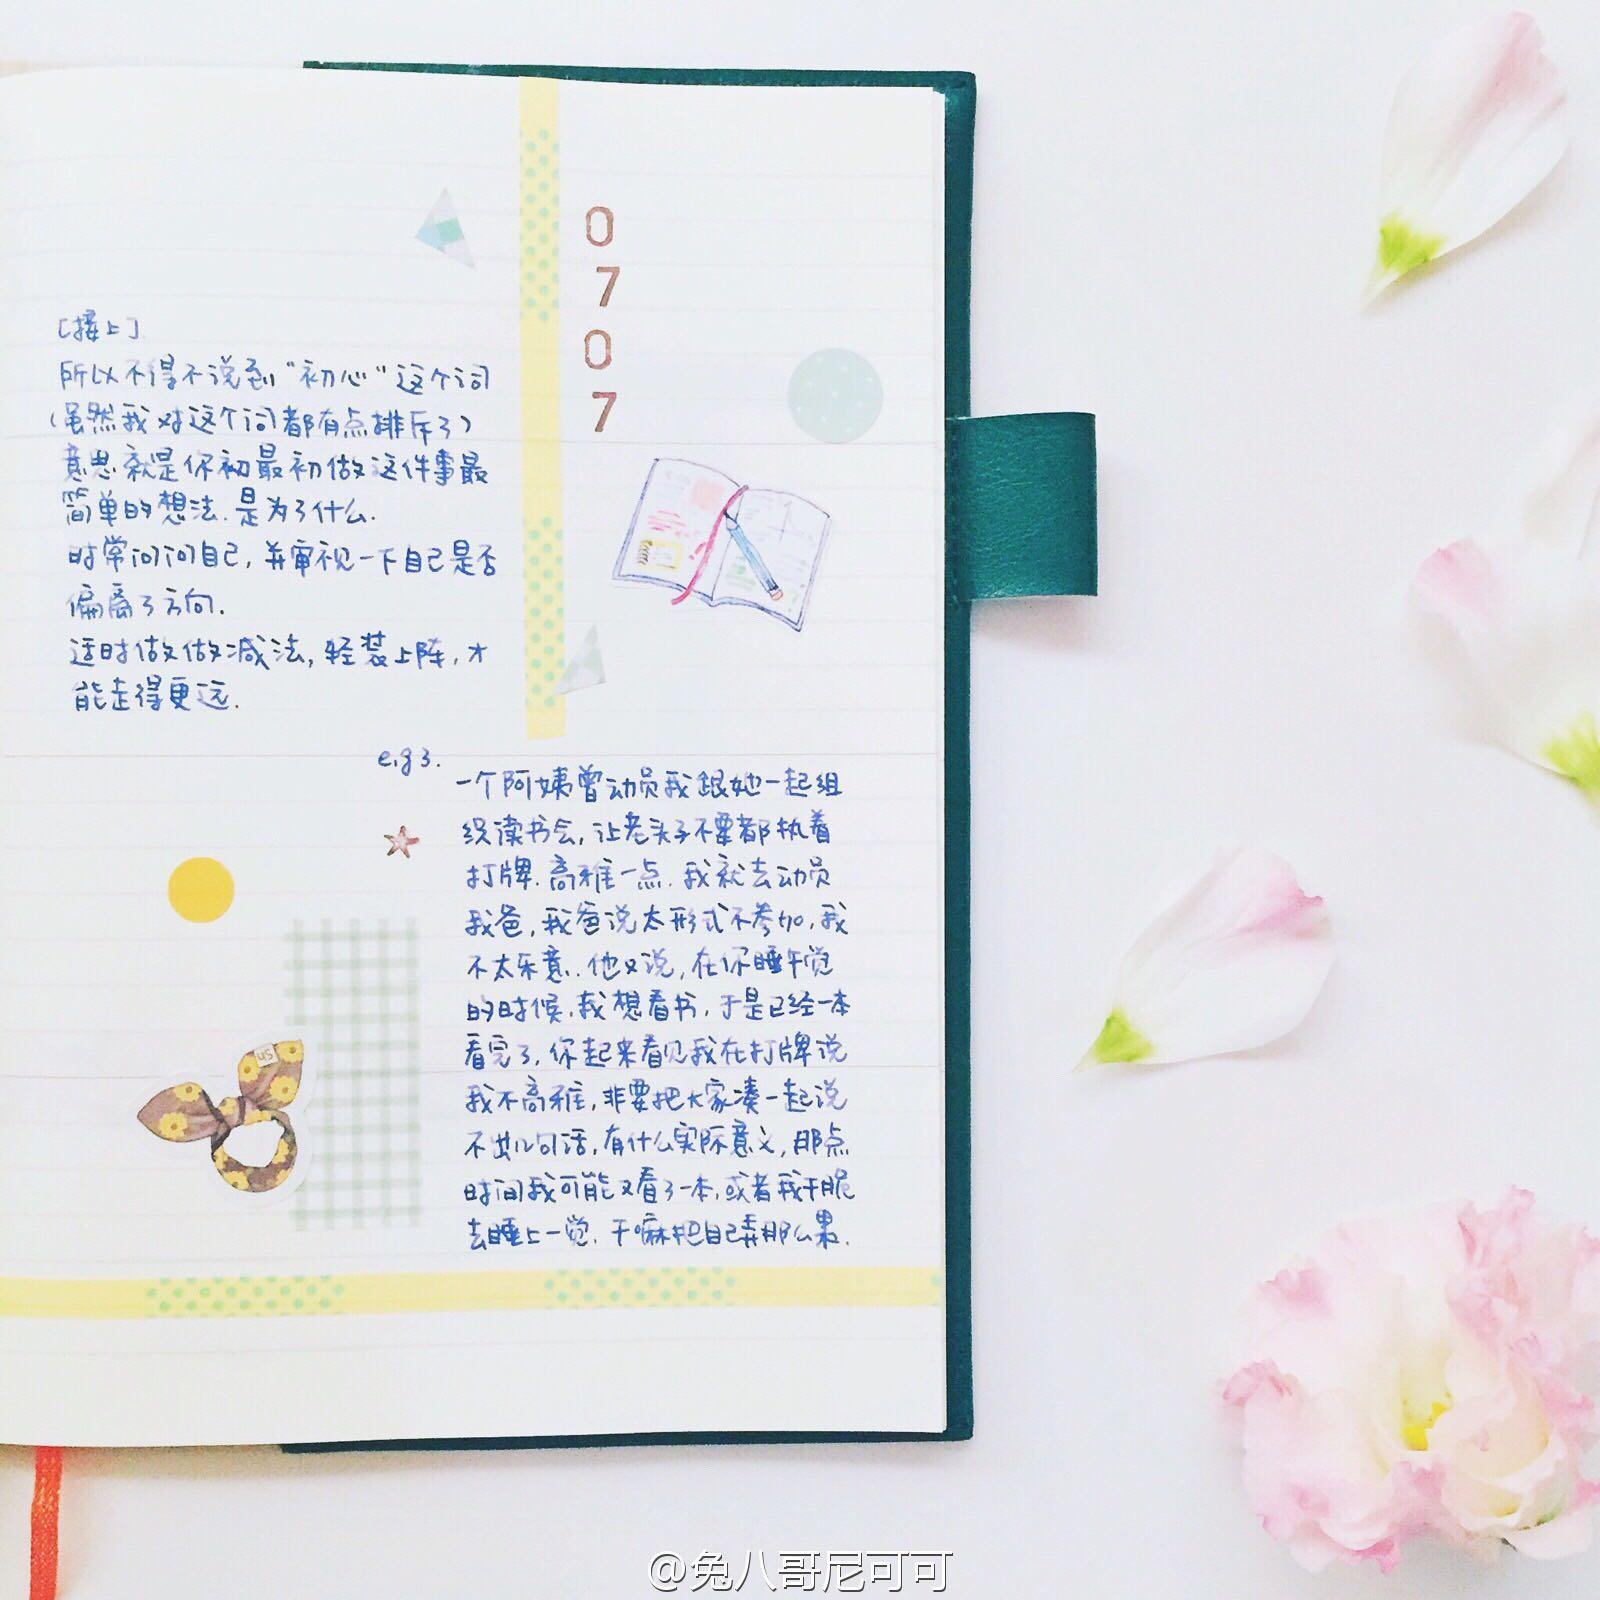 0
7
0
7
[接上]
所以不得不说到“初心”这个词
(虽然我对这个词都有点排斥了)
意思就是你初最初做这件事最
简单的想法.是为了什么.
时常问问自己,并审视一下自己是否
偏离了方向.
适时做做减法,轻装上阵,才
能走得更远.
e.g 3.
一个阿姨曾动员我跟她一起组
织读书会,让老头子不要都执着
打牌.高雅一点.我就去动员
我爸,我爸说太形式不参加,我
不太乐意.他又说,在你睡午觉
的时候,我想看书,于是已经一本
看完了,你起来看见我在打牌说
我不高雅,非要把大家凑一起说
不出几句话,有什么实际意义,那点
时间我可能又看了一本,或者我干脆
去睡上一觉.干嘛把自己弄那么累.
US
@兔八哥尼可可